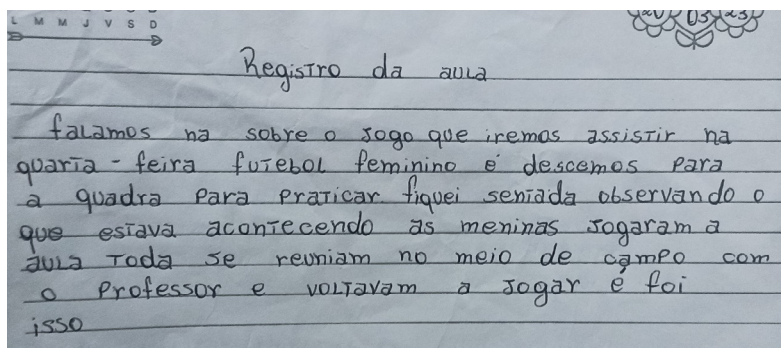 L M M J V S D
20 03 23
Registro da aula
falamos na sobre o jogo que iremos assistir na
quarta-feira futebol feminino é descemos para
a quadra para praticar fiquei sentada observando o
que estava acontecendo as meninas jogaram a
aula toda se reuniam no meio de campo com
o professor e voltavam a jogar é foi
isso